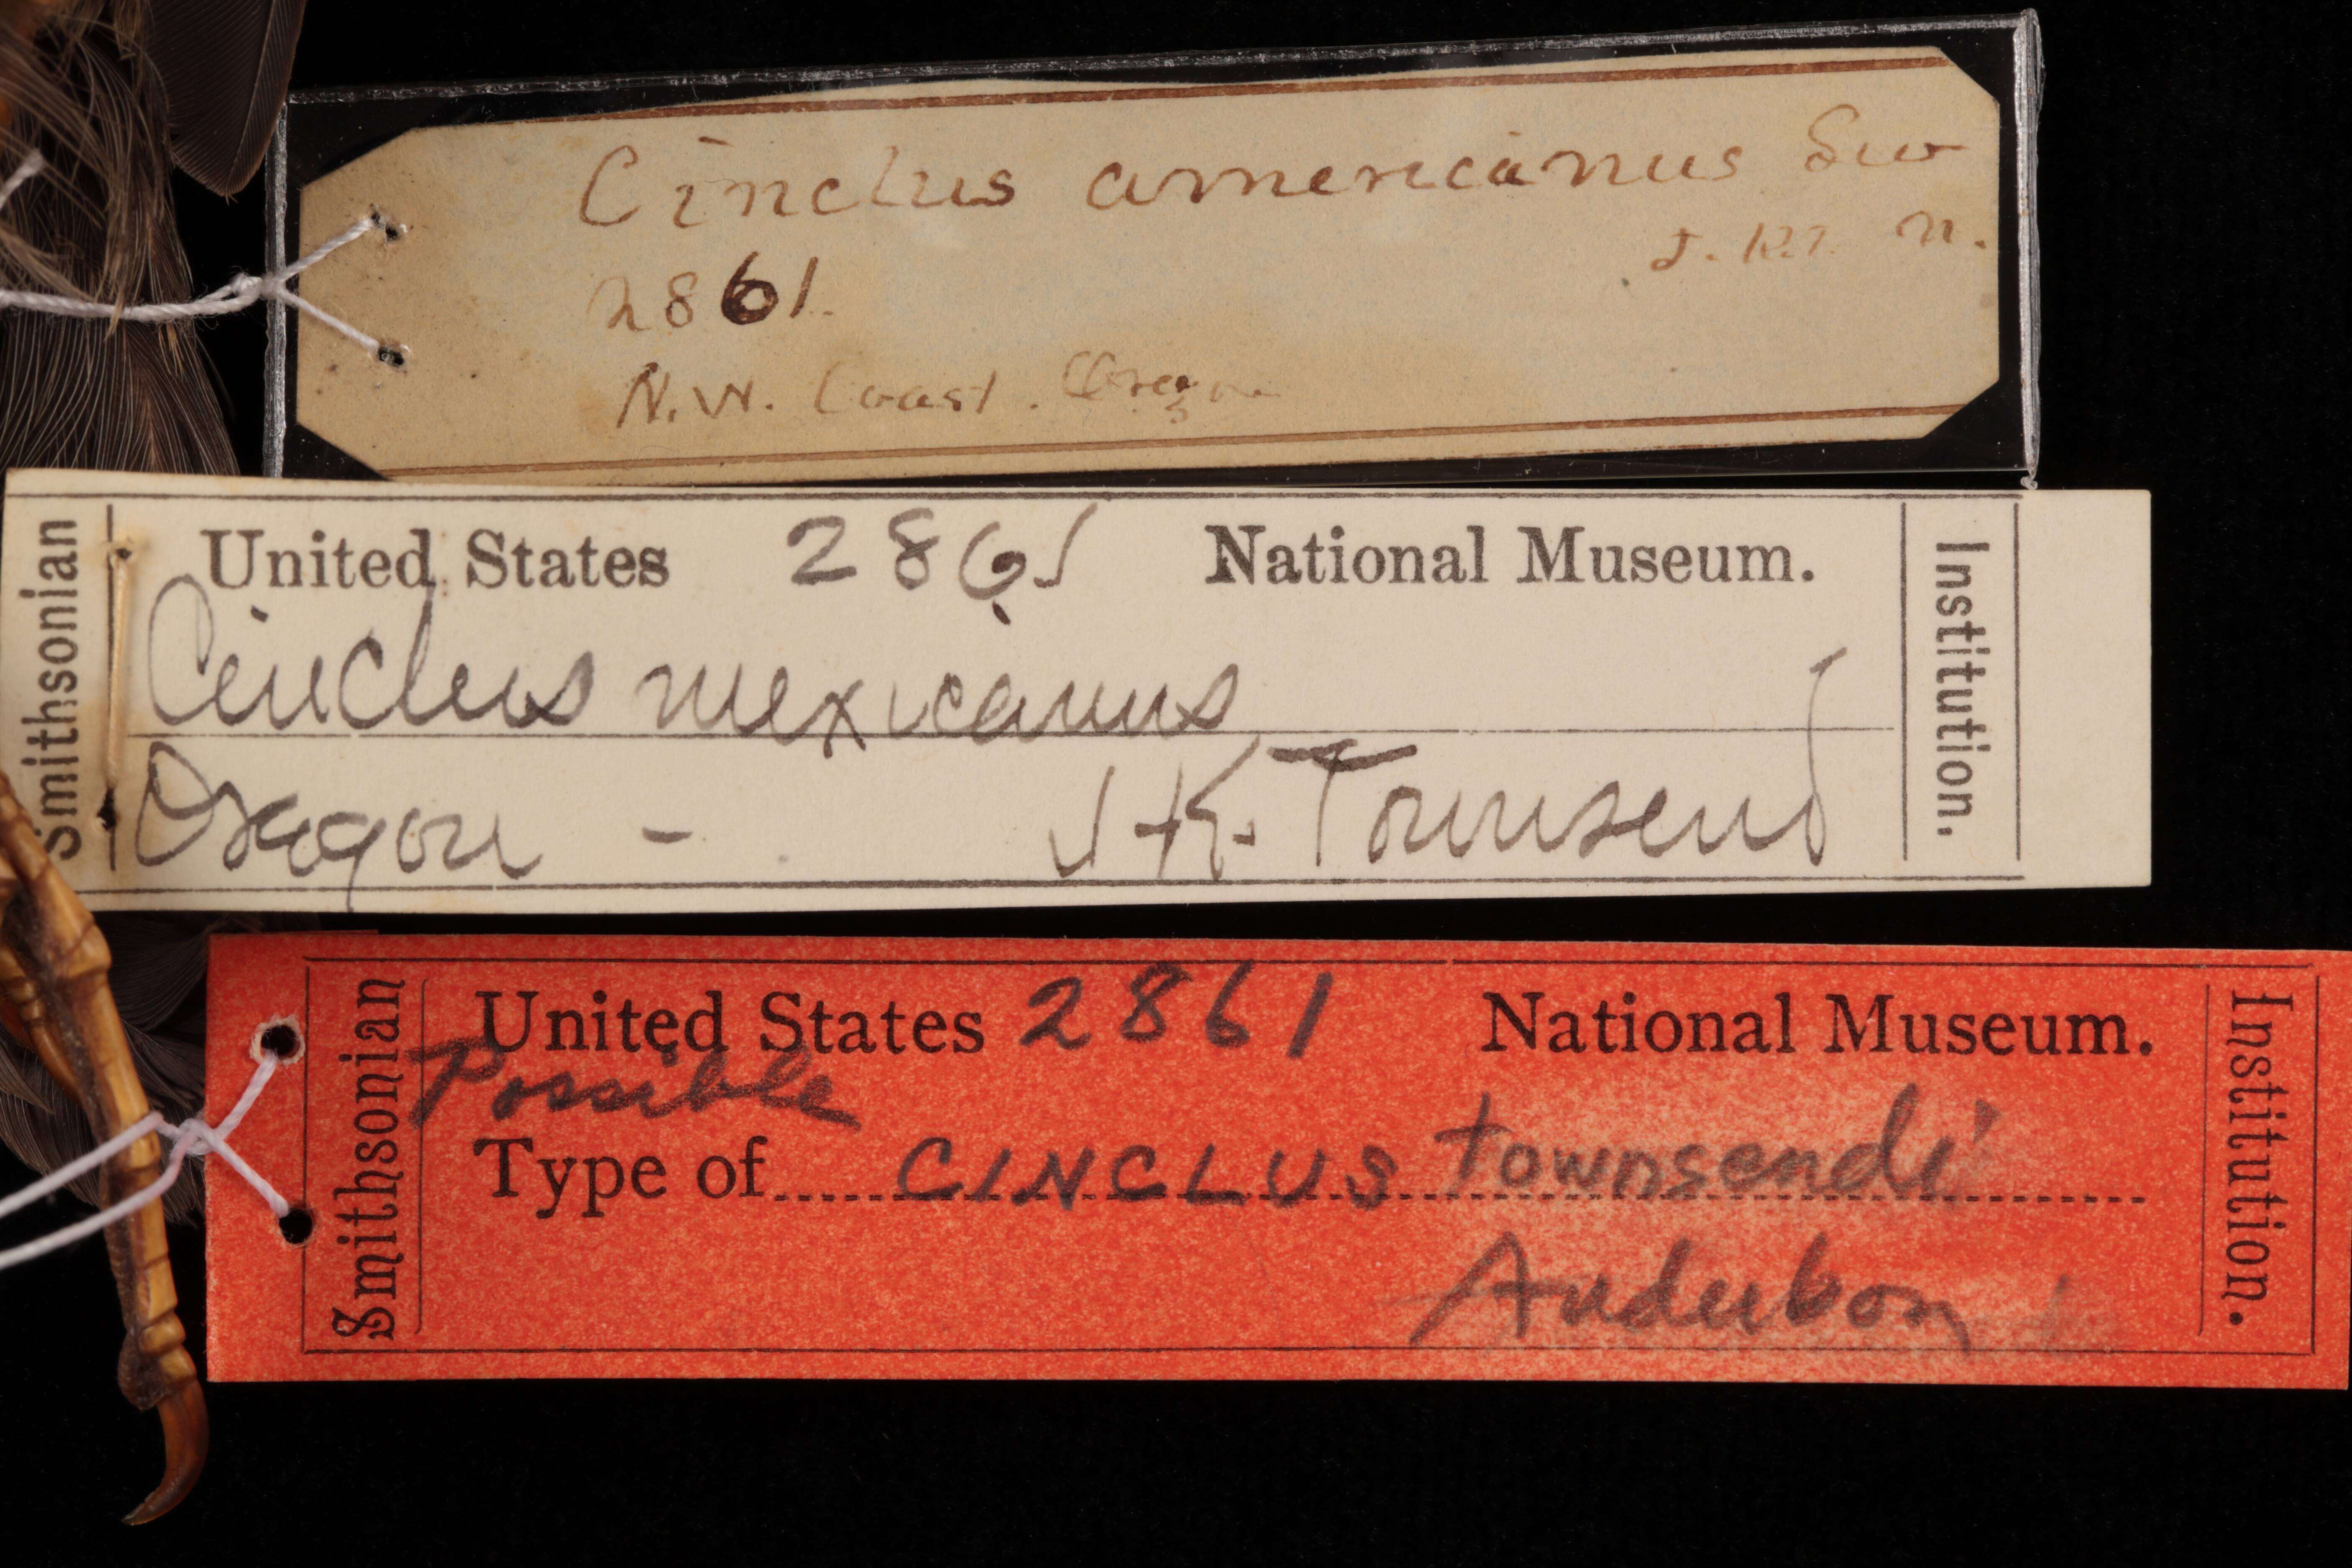 Cinclus americanus Sw
J. K. T. n.
2861.
N. W. Coast. Oregon
Smithsonian
United States 2861 National Museum.
Cinclus mexicanus
Oregon - J K. Townsend
Institution.
Smithsonian
United States 2861 National Museum.
Possible
Type of CINCLUS townsendi
Auderbon
Institution.